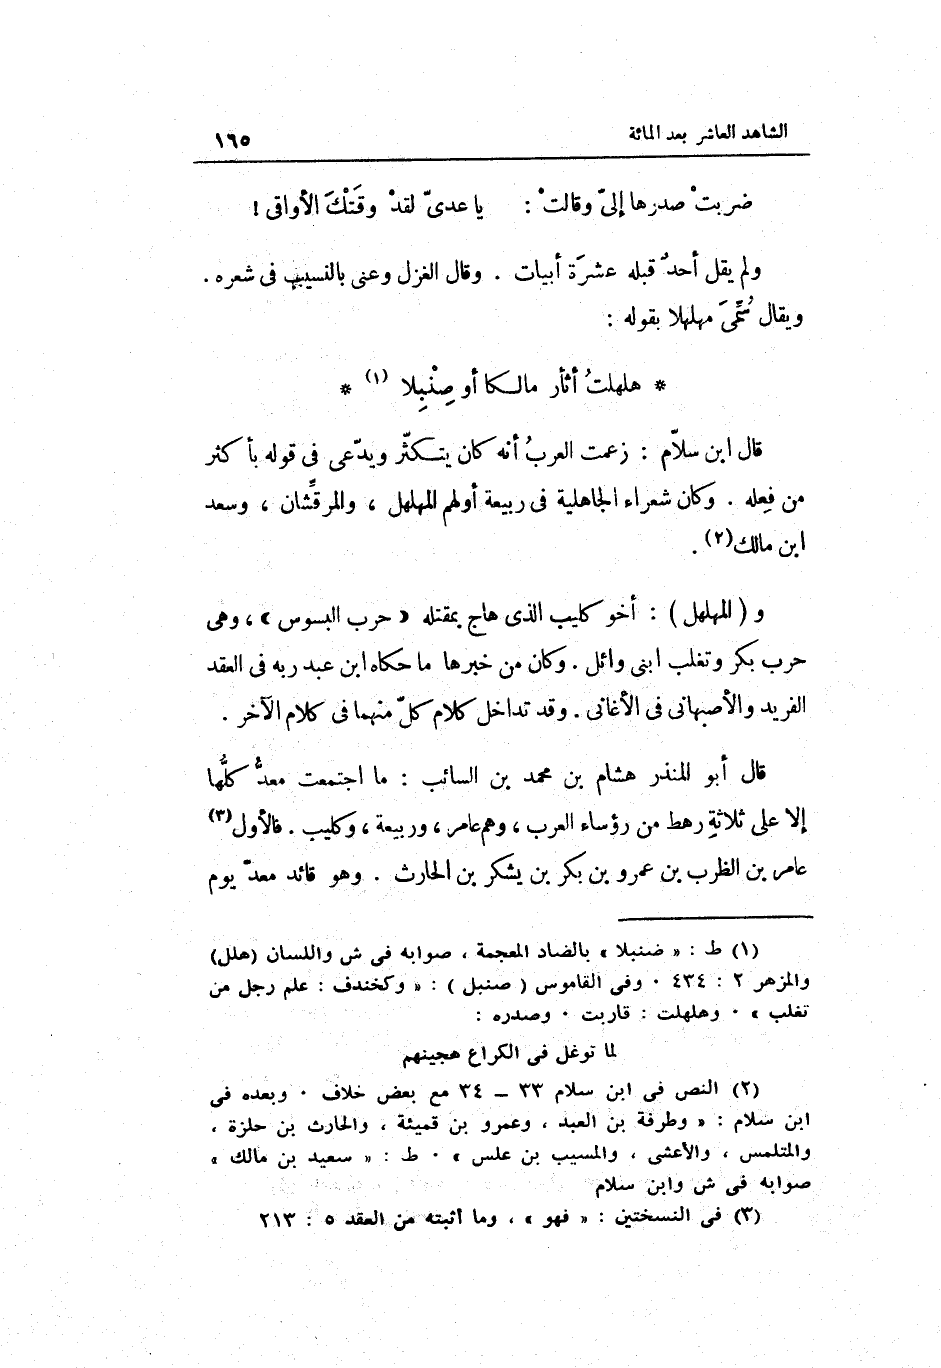 الشاهد العاشر بعد المائة ١٦٥
ضربتْ صدرها إلىّ وقالتْ : يا عدىّ لقدْ وقَتْكَ الأواقى !
ولم يقل أحدٌ قبله عشرَة أبيات . وقال الغزل وعنى بالنسيب فى شعره .
ويقال سُمِّىَ مهلهلا بقوله :
* هلهلتُ أثأر مالكا أو صِنْبِلا (١) *
قال ابن سلاّم : زعمت العربُ أنه كان يتكثّر ويدّعى فى قوله بأكثر
من فِعله . وكان شعراء الجاهلية فى ربيعة أولهم المهلهل ، والمرقِّشان ، وسعد
ابن مالك(٢) .
و ( المهلهل ) : أخو كليب الذى هاج بمقتله « حرب البسوس » ، وهى
حرب بكر وتغلب ابنى وائل . وكان من خبرها ما حكاه ابن عبد ربه فى العقد
الفريد والأصبهانى فى الأغانى . وقد تداخل كلام كلّ منهما فى كلام الآخر .
قال أبو المنذر هشام بن محمد بن السائب : ما اجتمعت معدٌّ كلُّها
إلا على ثلاثةِ رهط من رؤساء العرب ، وهم عامر ، وربيعة ، وكليب . فالأول(٣)
عامر بن الظرب بن عمرو بن بكر بن يشكر بن الحارث . وهو قائد معدّ يوم
(١) ط : « ضنبلا » بالضاد المعجمة ، صوابه فى ش واللسان (هلل)
والمزهر ٢ : ٤٣٤ . وفى القاموس ( صنبل ) : « وكخندف : علم رجل من
تغلب » . وهلهلت : قاربت . وصدره :
لما توغل فى الكراع هجينهم
(٢) النص فى ابن سلام ٣٣ – ٣٤ مع بعض خلاف . وبعده فى
ابن سلام : « وطرفة بن العبد ، وعمرو بن قميئة ، والحارث بن حلزة ،
والمتلمس ، والأعشى ، والمسيب بن علس » . ط : « سعيد بن مالك »
صوابه فى ش وابن سلام
(٣) فى النسختين : « فهو » ، وما أثبته من العقد ٥ : ٢١٣